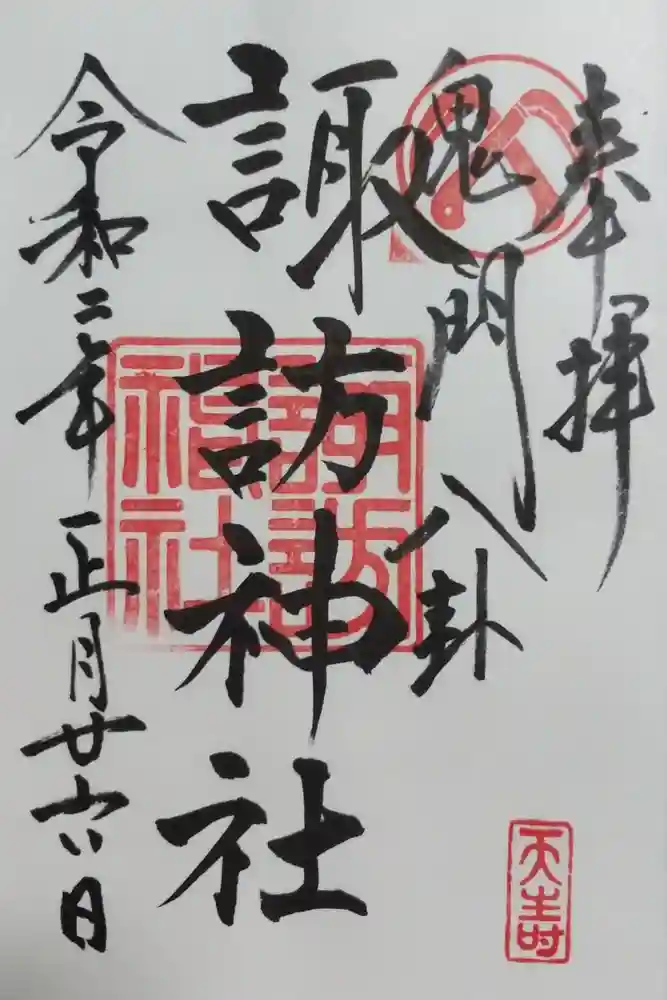 奉拝
鬼門八卦
諏訪神社
令和二年正月廿六日
諏訪